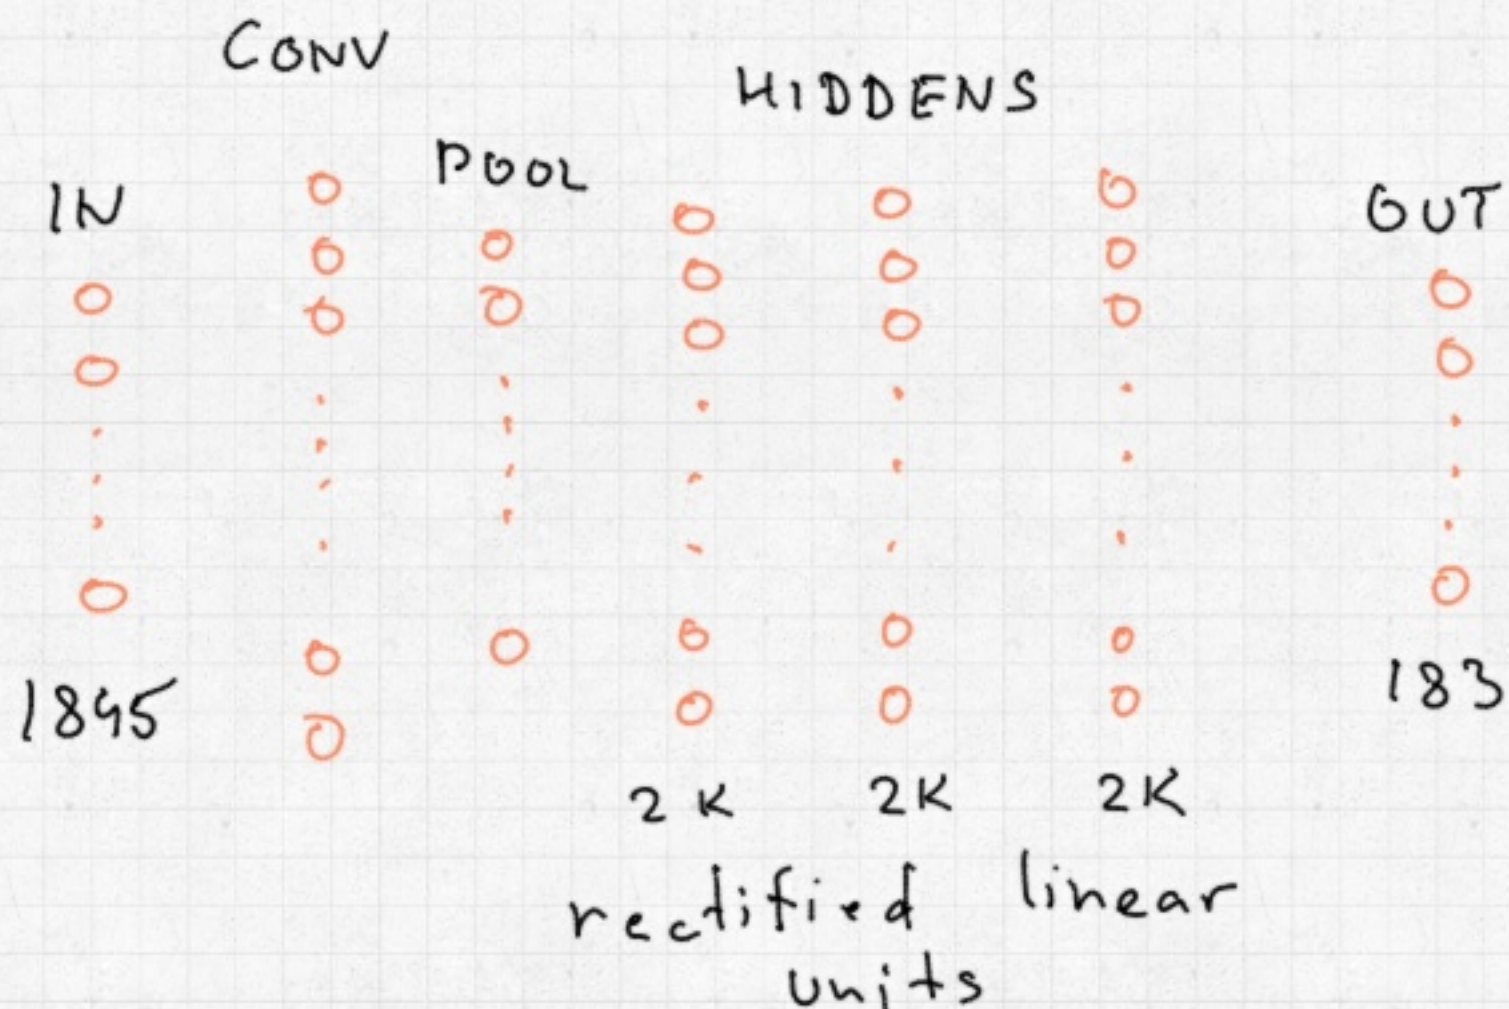 CONV
HIDDENS
POOL
IN
OUT
1845
183
2K 2K 2K
rectified linear
units